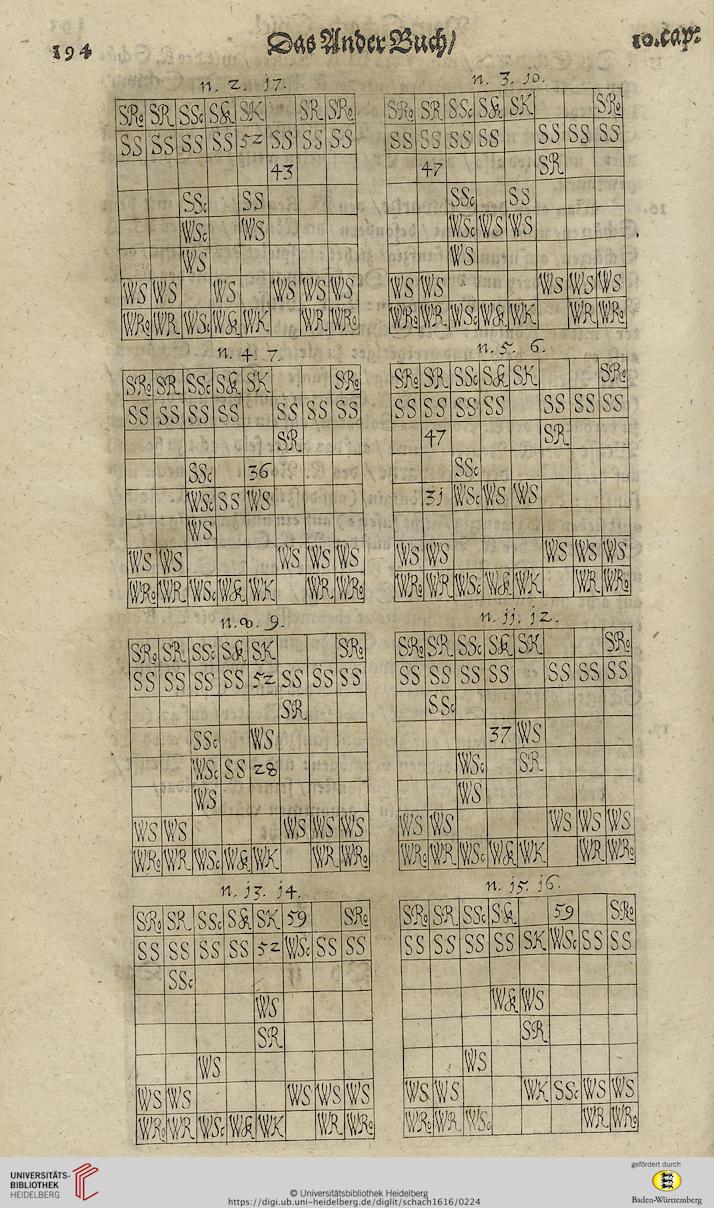 194 Das Ander Buch/ 10.cap:
n. 2. j7.
SRo SR SSc S& SK SR SRo
SS SS SS SS 52 SS SS SS
43
SSc SS
WSc WS
WS
WS WS WS WS WS WS
WRo WR WSc W& WK WR WRo
n. 3. j0.
SRo SR SSc S& SK SRo
SS SS SS SS SS SS SS
47 SR
SSc SS
WSc WS WS
WS
WS WS WS WS WS
WRo WR WSc W& WK WR WRo
n. 4. 7.
SRo SR SSc S& SK SRo
SS SS SS SS SS SS SS
SR
SSc 36
WSc SS WS
WS
WS WS WS WS WS
WRo WR WSc W& WK WR WRo
n. 5. 6.
SRo SR SSc S& SK SRo
SS SS SS SS SS SS SS
47 SR
SSc
3j WSc WS WS
WS WS WS WS WS
WRo WR WSc W& WK WR WRo
n. 8. 9.
SRo SR SSc S& SK SRo
SS SS SS SS 52 SS SS SS
SR
SSc WS
WSc SS 28
WS
WS WS WS WS WS
WRo WR WSc W& WK WR WRo
n. jj. j2.
SRo SR SSc S& SK SRo
SS SS SS SS SS SS SS
SSc
37 WS
WSc SR
WS
WS WS WS WS WS
WRo WR WSc W& WK WR WRo
n. j3. j4.
SRo SR SSc S& SK 59 SRo
SS SS SS SS 52 WSc SS SS
SSc
WS
SR
WS
WS WS WS WS WS
WRo WR WSc W& WK WR WRo
n. j5. j6.
SRo SR SSc S& 59 SRo
SS SS SS SS SK WSc SS SS
W& WS
SR
WS
WS WS WK SSc WS WS
WRo WR WSc WR WRo
UNIVERSITÄTS-
BIBLIOTHEK
HEIDELBERG
© Universitätsbibliothek Heidelberg
https://digi.ub.uni-heidelberg.de/diglit/schach1616/0224
gefördert durch
Baden-Württemberg